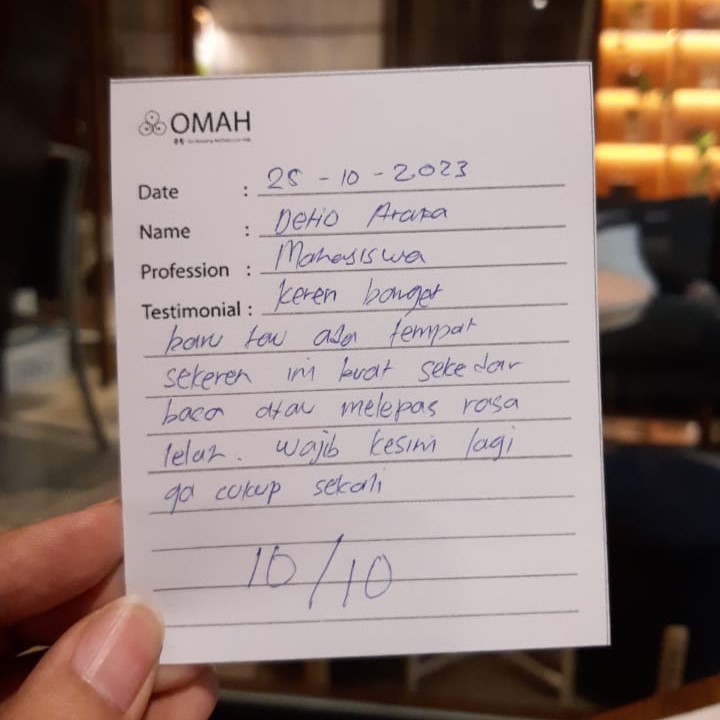 OMAH
Date : 28 - 10 - 2023
Name : Detio Araxa
Profession : Mahasiswa
Testimonial : keren banget
baru tau ada tempat
sekeren ini buat sekedar
baca atau melepas rasa
lelah. wajib kesini lagi
ga cukup sekali
10/10